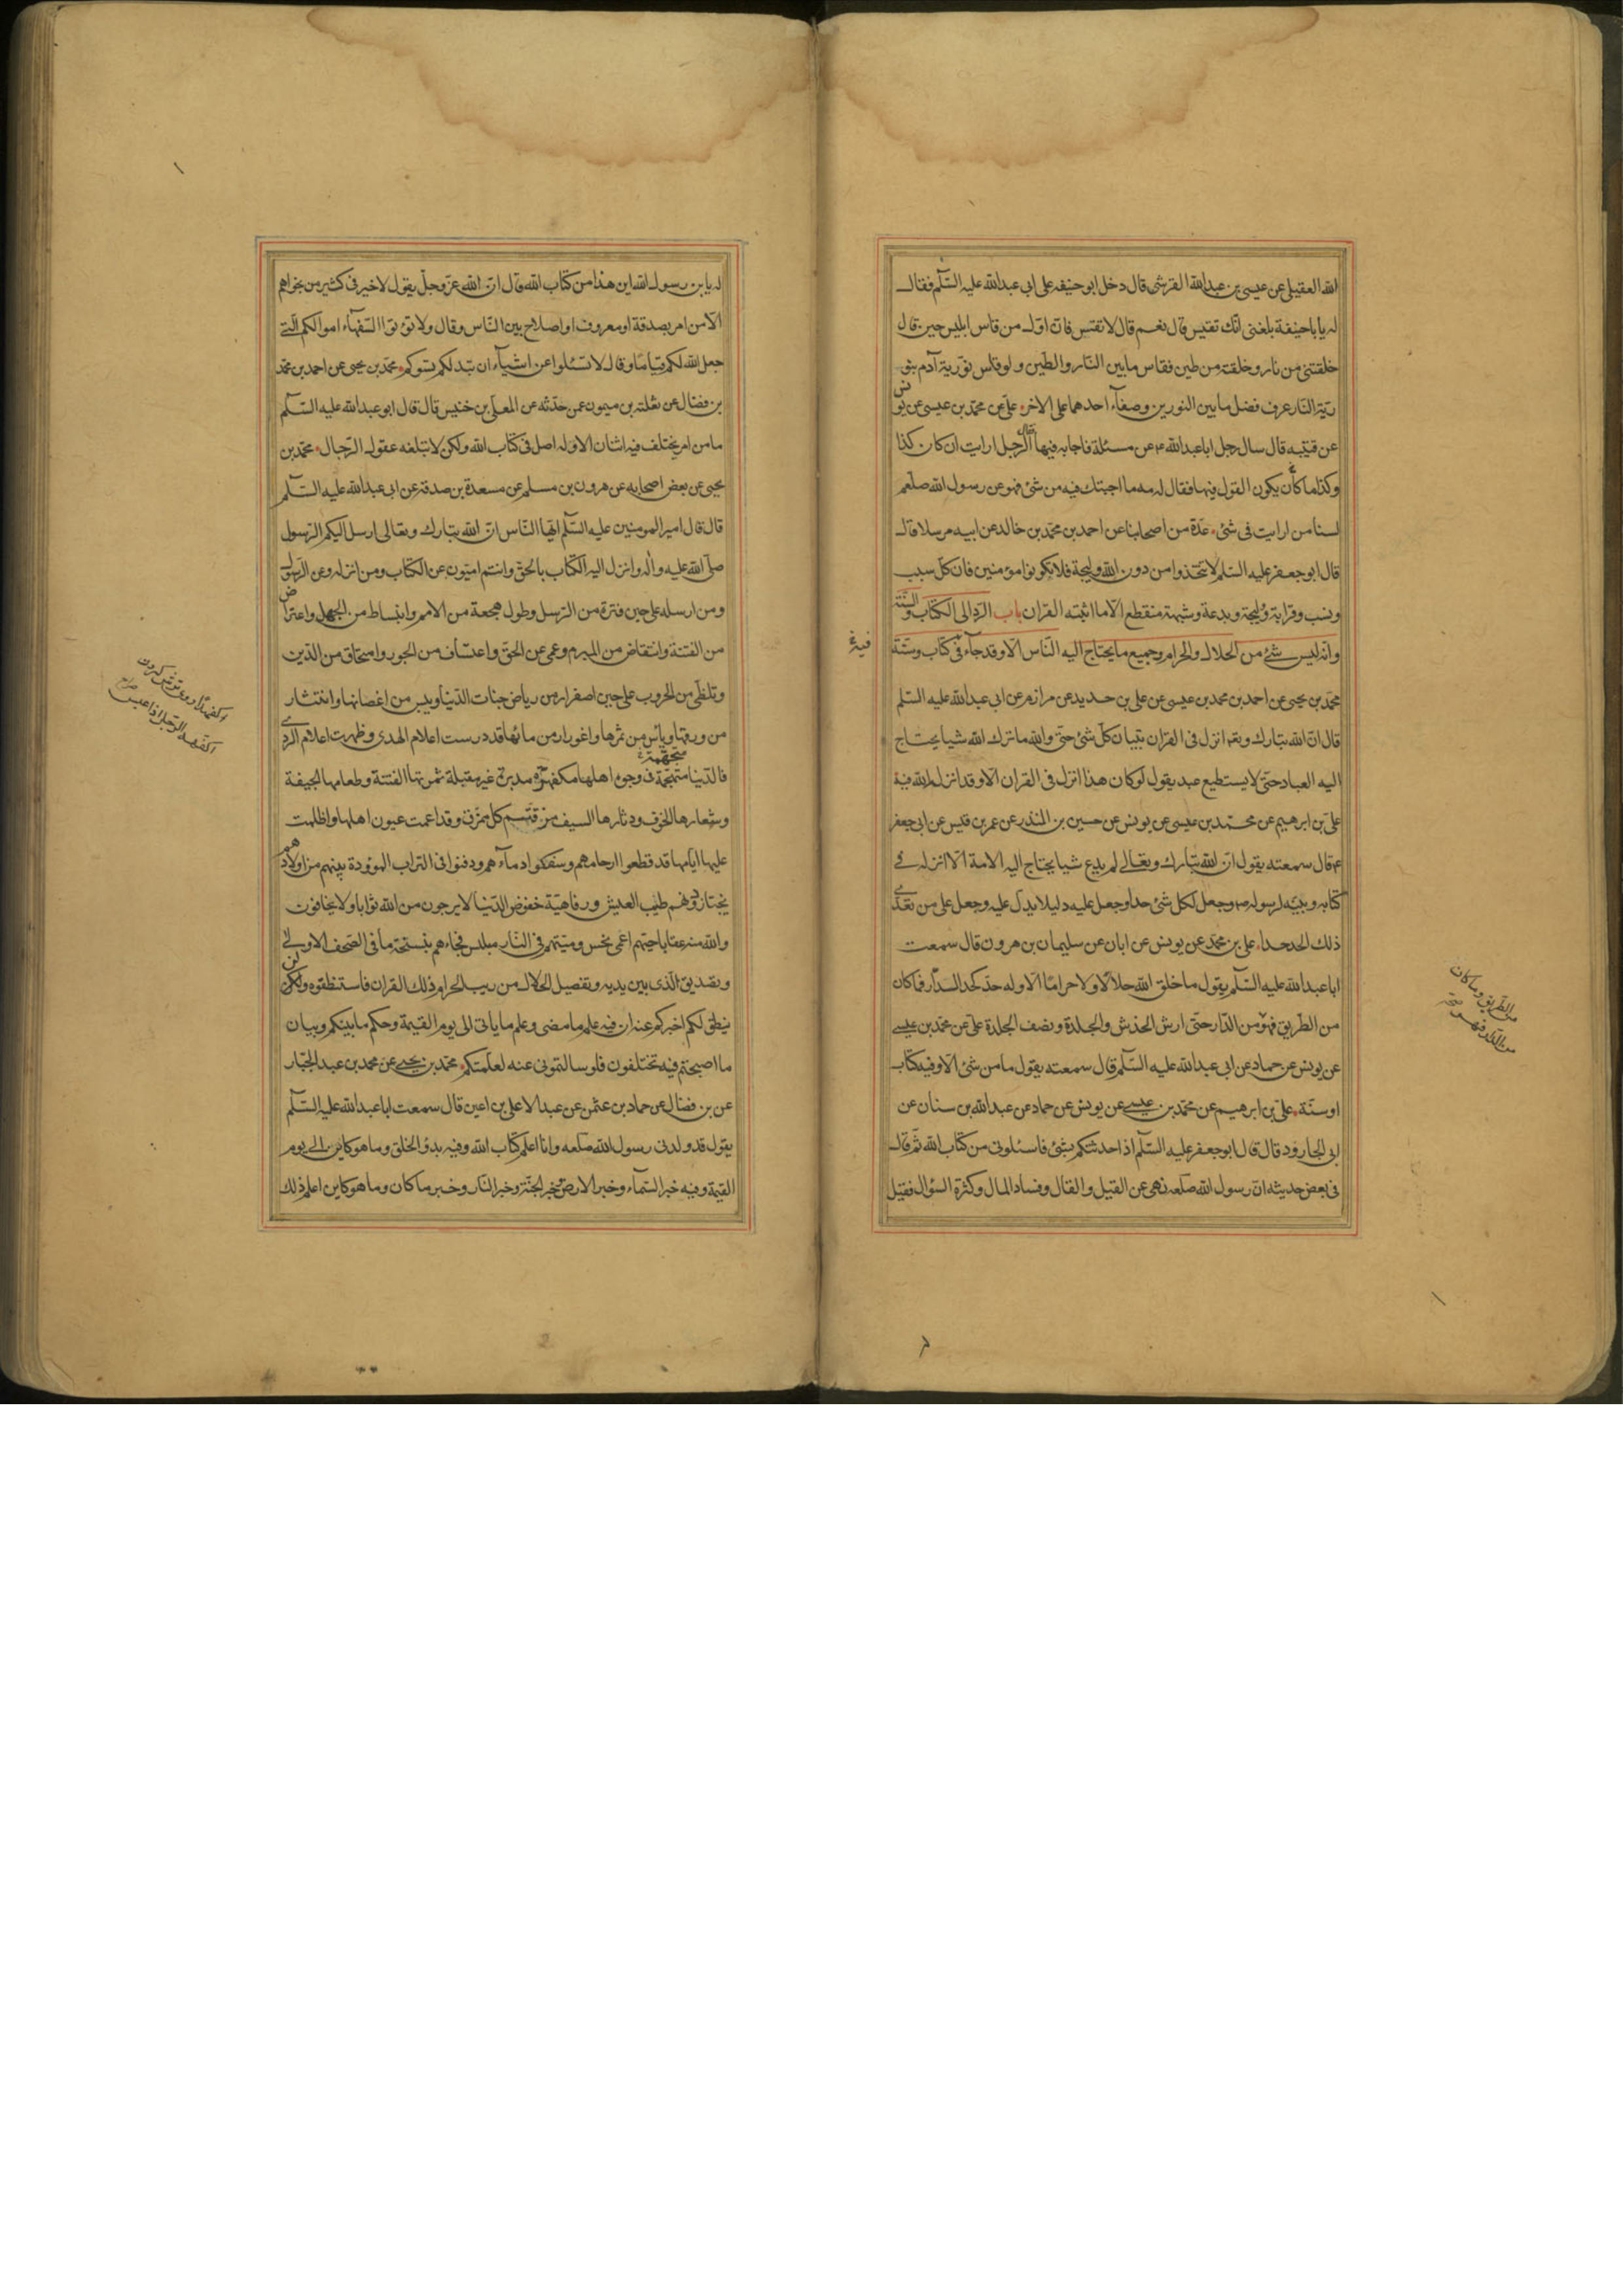 الله العقيلى عن عيسى بن عبدالله القرشى قال دخل ابو حنيفه على ابى عبدالله عليه السلم فقال
له يا باحنيفة بلغنى انك تقيس قال نعم قال لا تقس فان اول من قاس ابليس حين قال
خلقتنى من نار وخلقته من طين فقاس ما بين النار والطين ولو قاس نورية آدم بنو
رية النار عرف فضل ما بين النورين وصفاء احدهما على الاخر على عن محمد بن عيسى عن يونس
عن قتيبه قال سال رجل ابا عبدالله ع عن مسئلة فاجابه فيها فقال الرجل ارايت ان كان كذا
وكذا ما كان يكون القول فيها فقال له مه ما اجبتك فيه من شئ فهو عن رسول الله صلعم
لسنا من ارايت فى شئ عدة من اصحابنا عن احمد بن محمد بن خالد عن ابيه مرسلا قال
قال ابو جعفر عليه السلم لا تتخذوا من دون الله وليجة فلا تكونوا مؤمنين فان كل سبب
ونسب وقرابة ووليجة وبدعة وشبهة منقطع الا ما اثبته القران باب الرد الى الكتاب والسنة
وانه ليس شئ من الحلال والحرام وجميع ما يحتاج اليه الناس الا وقد جاء فى كتاب وسنة
فيه
محمد بن يحيى عن احمد بن محمد بن عيسى عن على بن حديد عن مرازم عن ابى عبدالله عليه السلم
قال ان الله تبارك وتعه انزل فى القران تبيان كل شئ حتى والله ما ترك الله شيا يحتاج
اليه العباد حتى لا يستطيع عبد يقول لو كان هذا انزل فى القران الا وقد انزله الله فيه
على بن ابرهيم عن محمد بن عيسى عن يونس عن حسين بن المنذر عن عمر بن قيس عن ابى جعفر
ع قال سمعته يقول ان الله تبارك وتعالى لم يدع شيا يحتاج اليه الامة الا انزله فى
كتابه وبينه لرسوله ص وجعل لكل شئ حدا وجعل عليه دليلا يدل عليه وجعل على من تعدى
ذلك الحد حدا على بن محمد عن يونس عن ابان عن سليمان بن هرون قال سمعت
ابا عبدالله عليه السلم يقول ما خلق الله حلالا ولا حراما الا وله حد كحد الدار فما كان
من الطريق فهو من الدار حتى ارش الخدش والجلدة ونصف الجلدة على عن محمد بن عيسى
من الطريق وما كان
من الدار فهو
عن يونس عن حماد عن ابى عبدالله عليه السلم قال سمعته يقول ما من شئ الا وفيه كتاب
او سنة على بن ابرهيم عن محمد بن عيسى عن يونس عن حماد عن عبدالله بن سنان عن
ابى الجارود قال قال ابو جعفر عليه السلم اذا حدثتكم بشئ فاسئلونى من كتاب الله ثم قال
فى بعض حديثه ان رسول الله صلعه نهى عن القيل والقال وفساد المال وكثرة السؤال فقيل
له يا بن رسول الله اين هذا من كتاب الله قال ان الله عز وجل يقول لا خير فى كثير من نجواهم
الا من امر بصدقة او معروف او اصلاح بين الناس وقال ولا تؤتوا السفهاء اموالكم التى
جعل الله لكم قياما وقال لا تسئلوا عن اشياء ان تبد لكم تسؤكم محمد بن يحيى عن احمد بن محمد
بن فضال عن ثعلبة بن ميمون عمن حدثه عن المعلى بن خنيس قال قال ابو عبدالله عليه السلم
ما من امر يختلف فيه اثنان الا وله اصل فى كتاب الله ولكن لا تبلغه عقول الرجال محمد بن
يحيى عن بعض اصحابه عن هرون بن مسلم عن مسعدة بن صدقة عن ابى عبدالله عليه السلم
قال قال امير المومنين عليه السلم ايها الناس ان الله تبارك وتعالى ارسل اليكم الرسول
صلى الله عليه واله وانزل اليه الكتاب بالحق وانتم اميون عن الكتاب ومن انزله وعن الرسول
ومن ارسله على حين فترة من الرسل وطول هجعة من الامم وانبساط من الجهل واعتراض
من الفتنة وانتقاض من المبرم وعمى عن الحق واعتساف من الجور وامتحاق من الدين
وتلظى من الحروب على حين اصفرار من رياض جنات الدنيا ويبس من اغصانها وانتثار
من ورقها وياس من ثمرها واغورار من مائها قد درست اعلام الهدى وظهرت اعلام الردى
فالدنيا متهجمة فى وجوه اهلها مكفهرة مدبرة غير مقبلة ثمرتها الفتنة وطعامها الجيفة
متجهمة
وشعارها الخوف ودثارها السيف مزقتهم كل ممزق وقد اعمت عيون اهلها واظلمت
عليها ايامها قد قطعوا ارحامهم وسفكوا دماءهم ودفنوا فى التراب الموؤدة بينهم من اولادهم
يجتاز دونهم طيب العيش ورفاهية خفوض الدنيا لا يرجون من الله ثوابا ولا يخافون
والله منه عقابا حيهم اعمى نجس وميتهم فى النار مبلس فجاءهم بنسخة ما فى الصحف الاولى
وتصديق الذى بين يديه وتفصيل الحلال من ريب الحرام ذلك القران فاستنطقوه ولن
ينطق لكم اخبركم عنه ان فيه علم ما مضى وعلم ما ياتى الى يوم القيمة وحكم ما بينكم وبيان
ما اصبحتم فيه تختلفون فلو سالتمونى عنه لعلمتكم محمد بن يحيى عن محمد بن عبد الجبار
عن بن فضال عن حماد بن عثمن عن عبد الاعلى بن اعين قال سمعت ابا عبدالله عليه السلم
يقول قد ولدنى رسول الله صلعه وانا اعلم كتاب الله وفيه بدؤ الخلق وما هو كاين الى يوم
القيمة وفيه خبر السماء وخبر الارض وخبر الجنة وخبر النار وخبر ما كان وما هو كاين اعلم ذلك